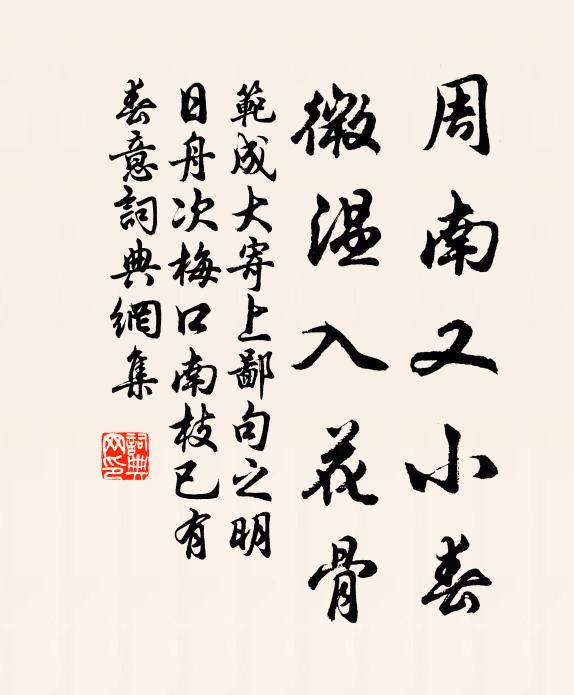 周南又小春
微温入花骨
範成大寄上鄙句之明
日舟次梅口南枝已有
春意詞典網集
詞典網印